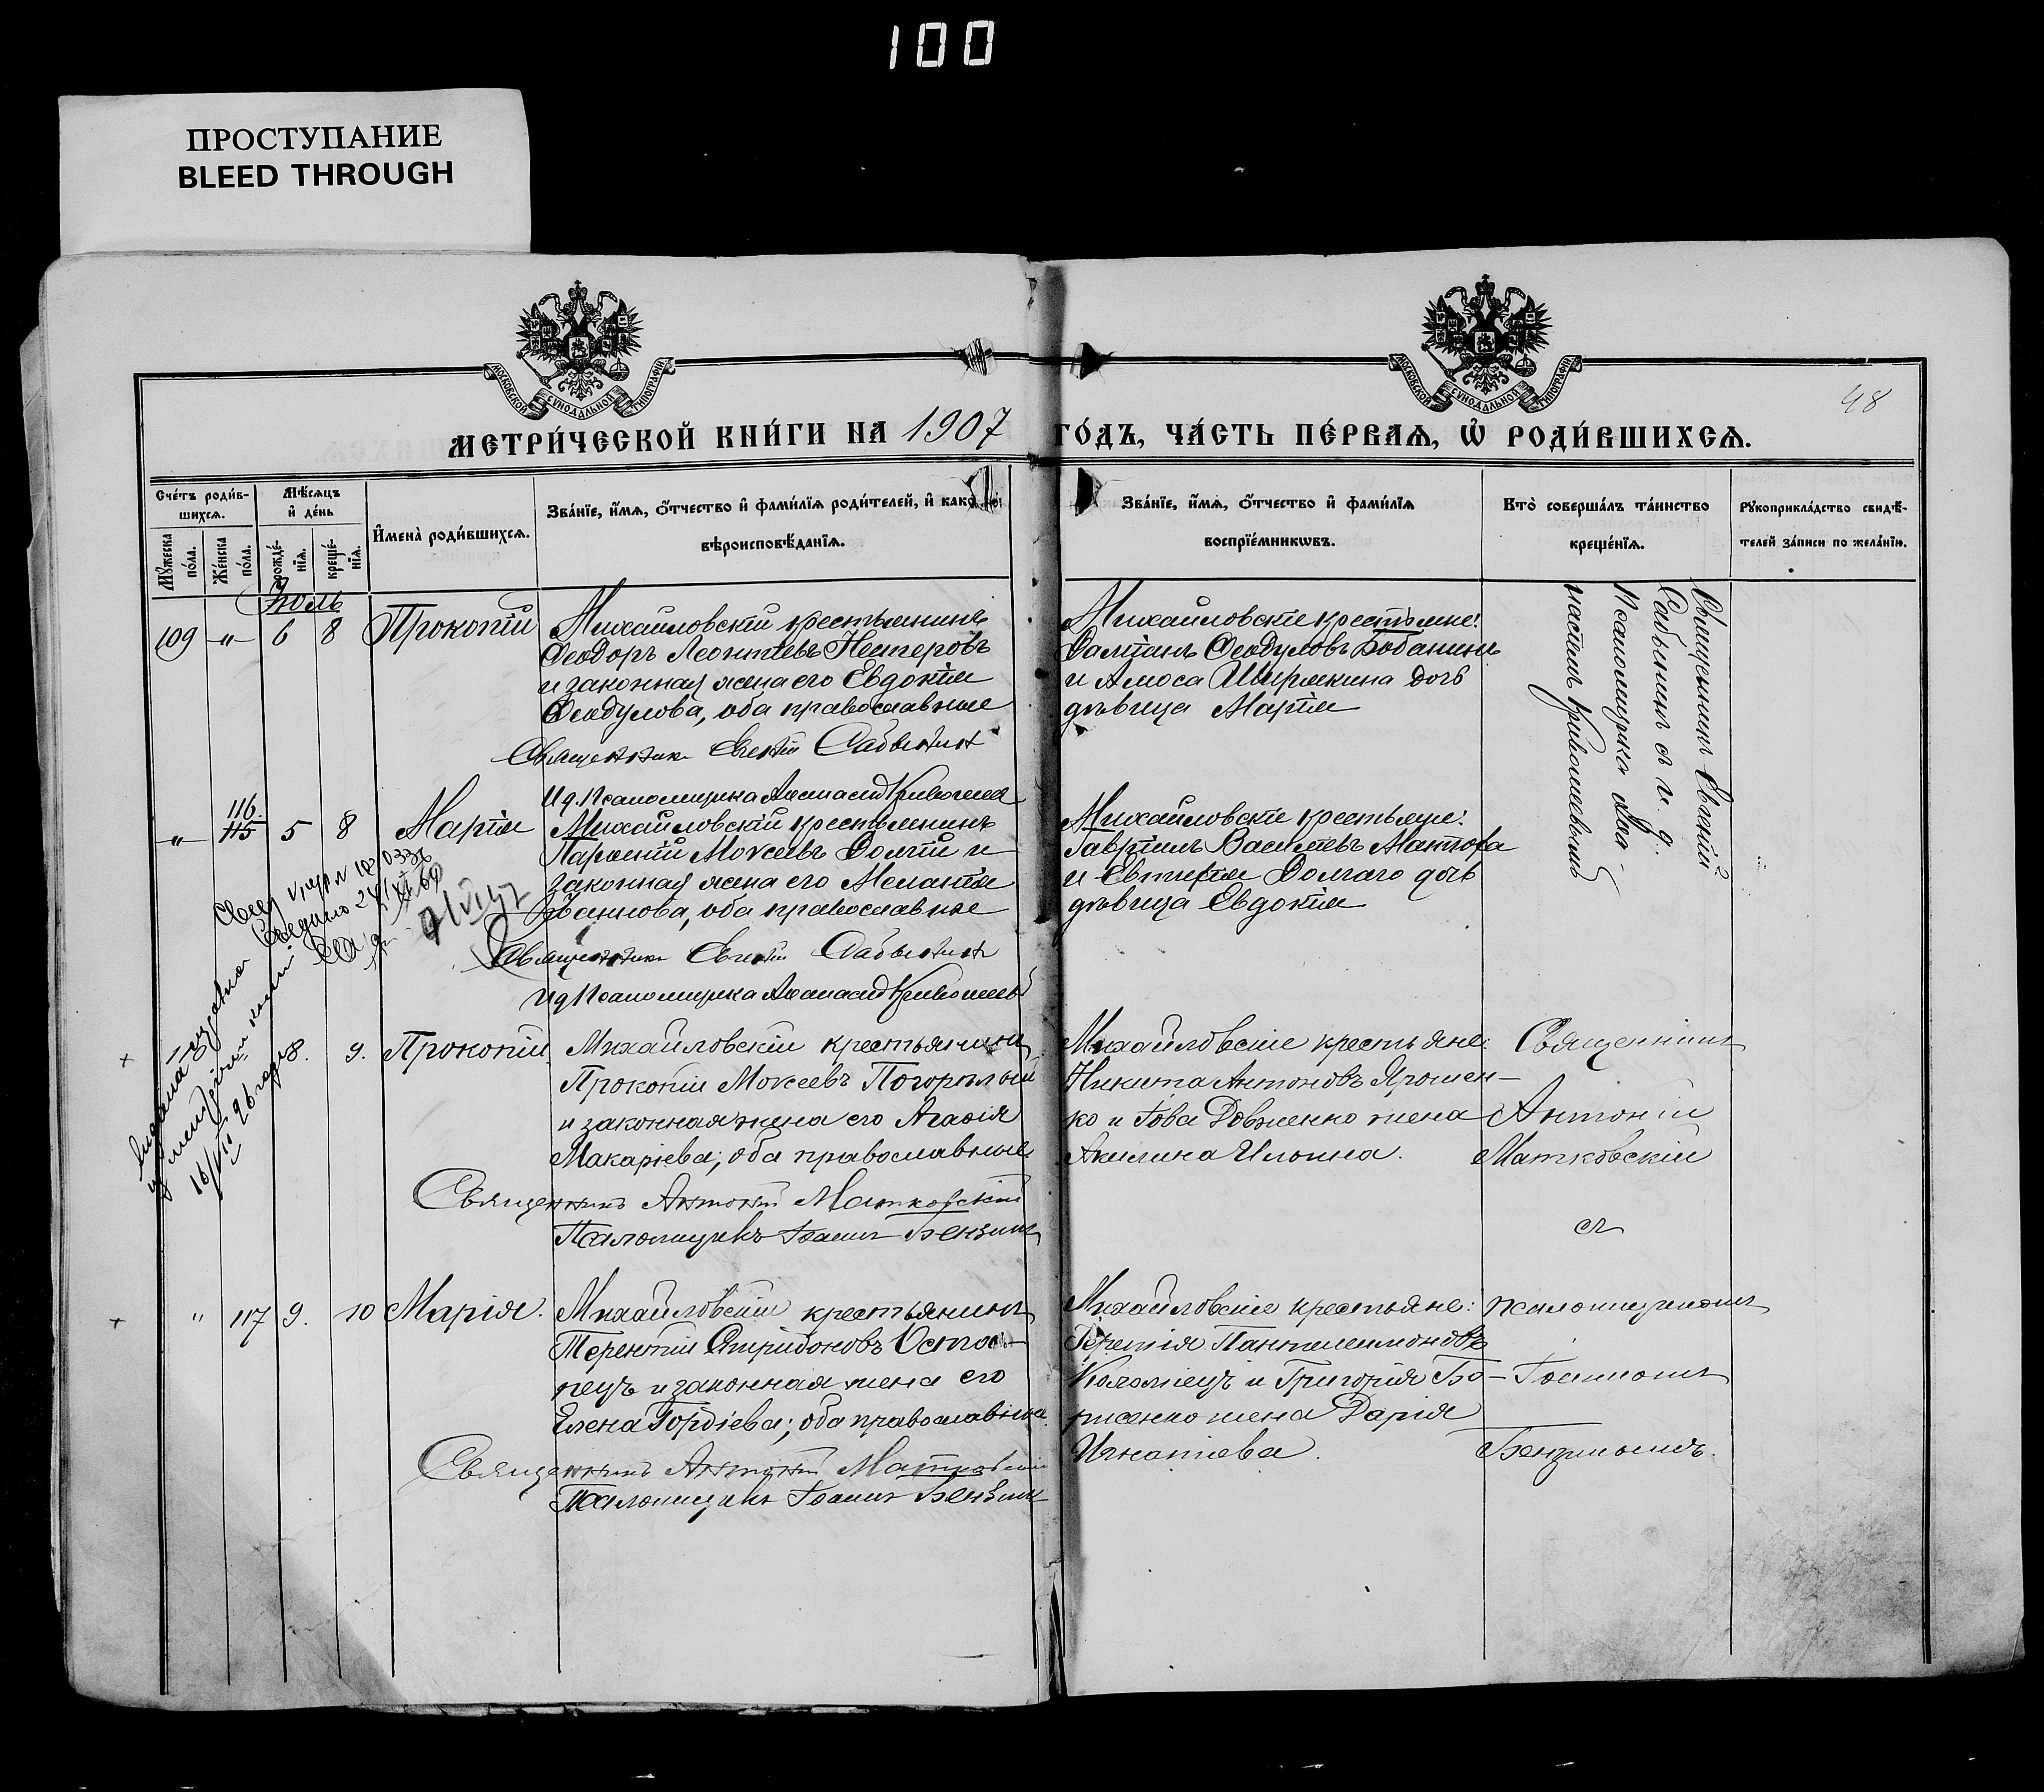 100
ПРОСТУПАНИЕ
BLEED THROUGH
МОСКОВСКОЙ СУНОДАЛЬНОЙ ТИПОГРАФІИ
МОСКОВСКОЙ СУНОДАЛЬНОЙ ТИПОГРАФІИ
48
МЕТРИ́ЧЕСКОЙ КНИ́ГИ НА 1907 ГО́ДЪ, ЧА́СТЬ ПЕ́РВАѦ, Ѡ҆ РОДИ́ВШИХСѦ.
Сче́тъ роди́в-
шихсѧ.
Мꙋ́жеска по́ла.
Же́нска по́ла.
Мѣ́сѧцъ и҆ де́нь
рожде́-
нїѧ.
креще́-
нїѧ.
И҆мена̀ роди́вшихсѧ.
Зва́нїе, и҆́мѧ, ѻ҆́тчество и҆ фами́лїѧ роди́телей, и҆ како
вѣроисповѣ́данїѧ.
Зва́нїе, и҆́мѧ, ѻ҆́тчество и҆ фами́лїѧ
воспрїе́мникѡвъ.
Кто̀ соверша́лъ та́инство
креще́нїѧ.
Рꙋкоприкла́дство свидѣ́-
телей за́писи по жела́нїю.
Іюль
109 „ 6 8 Прокопій
Михайловскій крестьянинъ
Ѳеодоръ Леонтіевъ Нестеровъ
и законная жена его Евдокія
Ѳеодулова, оба православные
Священникъ Евгеній Сабынин
И д. Псаломщика Аѳанасій Кривошея
Михайловскіе крестьяне:
Даміанъ Ѳеодуловъ Бобанинъ
и Амоса Ширмкина дочь
дѣвица Марія
Священникъ Евгеній
Сабынинъ съ и. д.
псаломщика Аѳа-
насіемъ Кривошеевымъ
„ 116 115 5 8 Марія
Михайловскій крестьянинъ
Мокеевъ Долгій и
законная жена его Меланія
Іоаннова, оба православные
Священникъ Евгеній Сабынин
И д Псаломщика Аѳанасій Кривошеевъ
Михайловскіе крестьяне:
Гавріилъ Васильевъ
и Долгаго дочь
дѣвица Евдокія
8. 9. Прокопій
Михайловскій крестьянинъ
Прокопій Мокеевъ Погорѣлый
и законная жена его Агаѳія
Макаріева; оба православные
Священникъ Антоній Матковскій
Псаломщикъ Іоаннъ Бензинъ
Михайловскіе крестьяне:
Никита Антоновъ Ярошен-
ко и Іова Довженко жена
Акилина Ильина.
Священникъ
Антоній
Матковскій
съ
„ 117 9. 10 Марія.
Михайловскій крестьянинъ
Терентій Спиридоновъ Остап-
пецъ и законная жена его
Елена Гордіева; оба православные.
Священникъ Антоній Матковскій
Псаломщикъ Іоаннъ Бензинъ
Михайловскіе крестьяне:
Іеремія Пантелеимоновъ
Коломіецъ и Григорія Бо-
рисенко жена Дарія
Игнатіева.
псаломщикомъ
Іоанномъ
Бензинымъ.